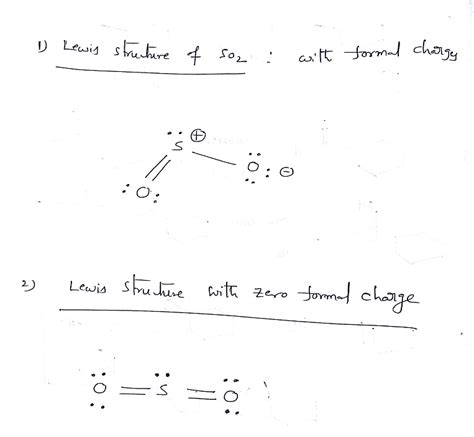 1) Lewis structure of SO2 : with formal charges
S ⊕
O : ⊖
: O :
2) Lewis structure with zero formal charge
O = S = O